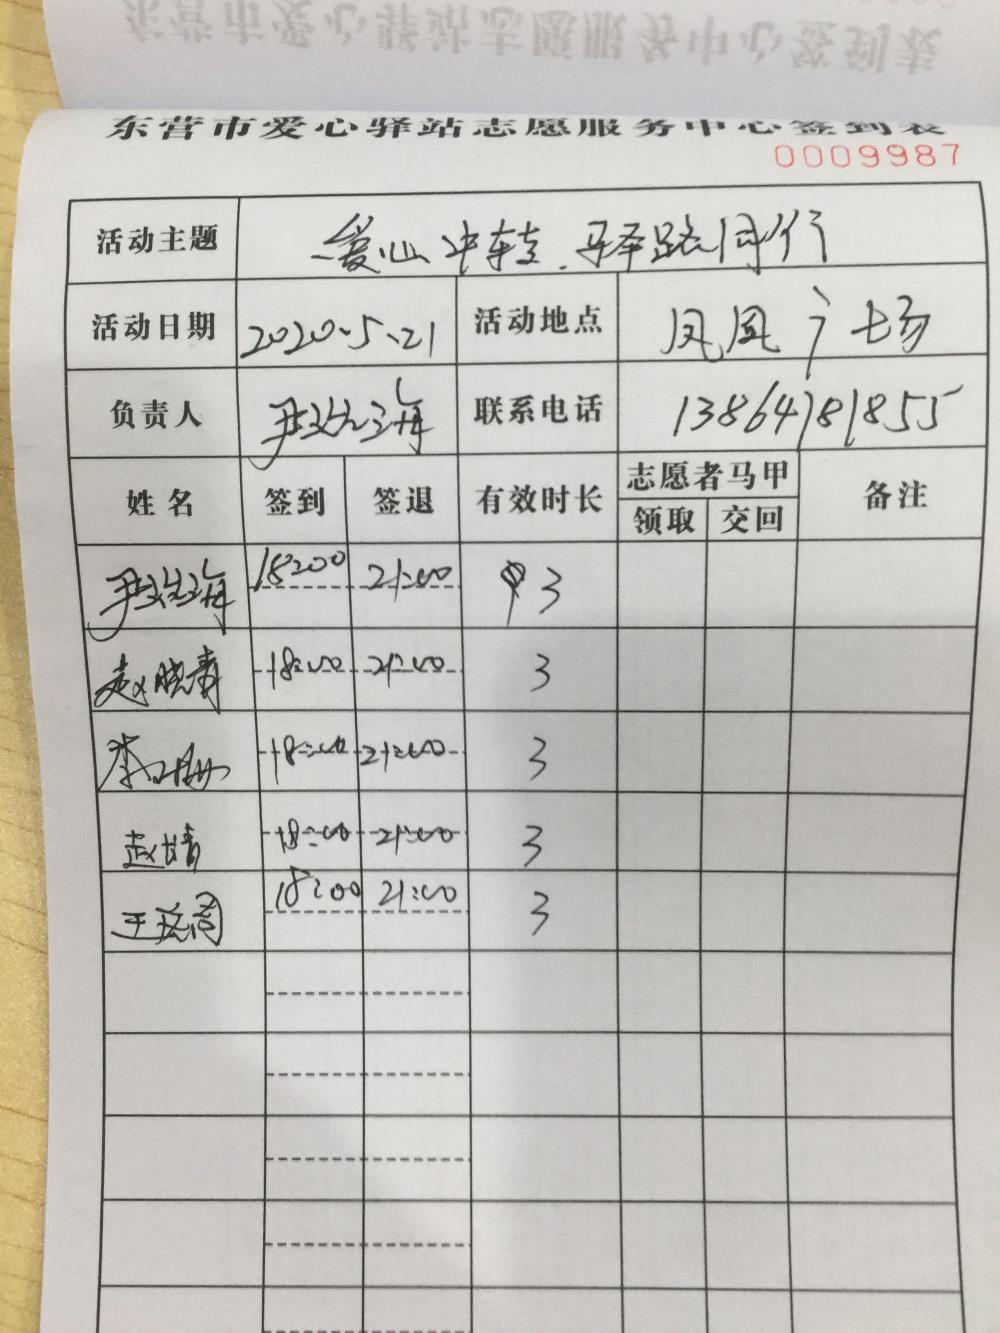 东营市爱心驿站志愿服务中心签到表
0009987
活动主题 爱心中转、驿路同行
活动日期 2020.5.21 活动地点 凤凰广场
负责人 尹效海 联系电话 13864781855
姓名 签到 签退 有效时长 志愿者马甲 备注
领取 交回
尹效海 18:00 21:00 3
赵晓青 18:00 21:00 3
李 18:00 21:00 3
赵婧 18:00 21:00 3
王 18:00 21:00 3